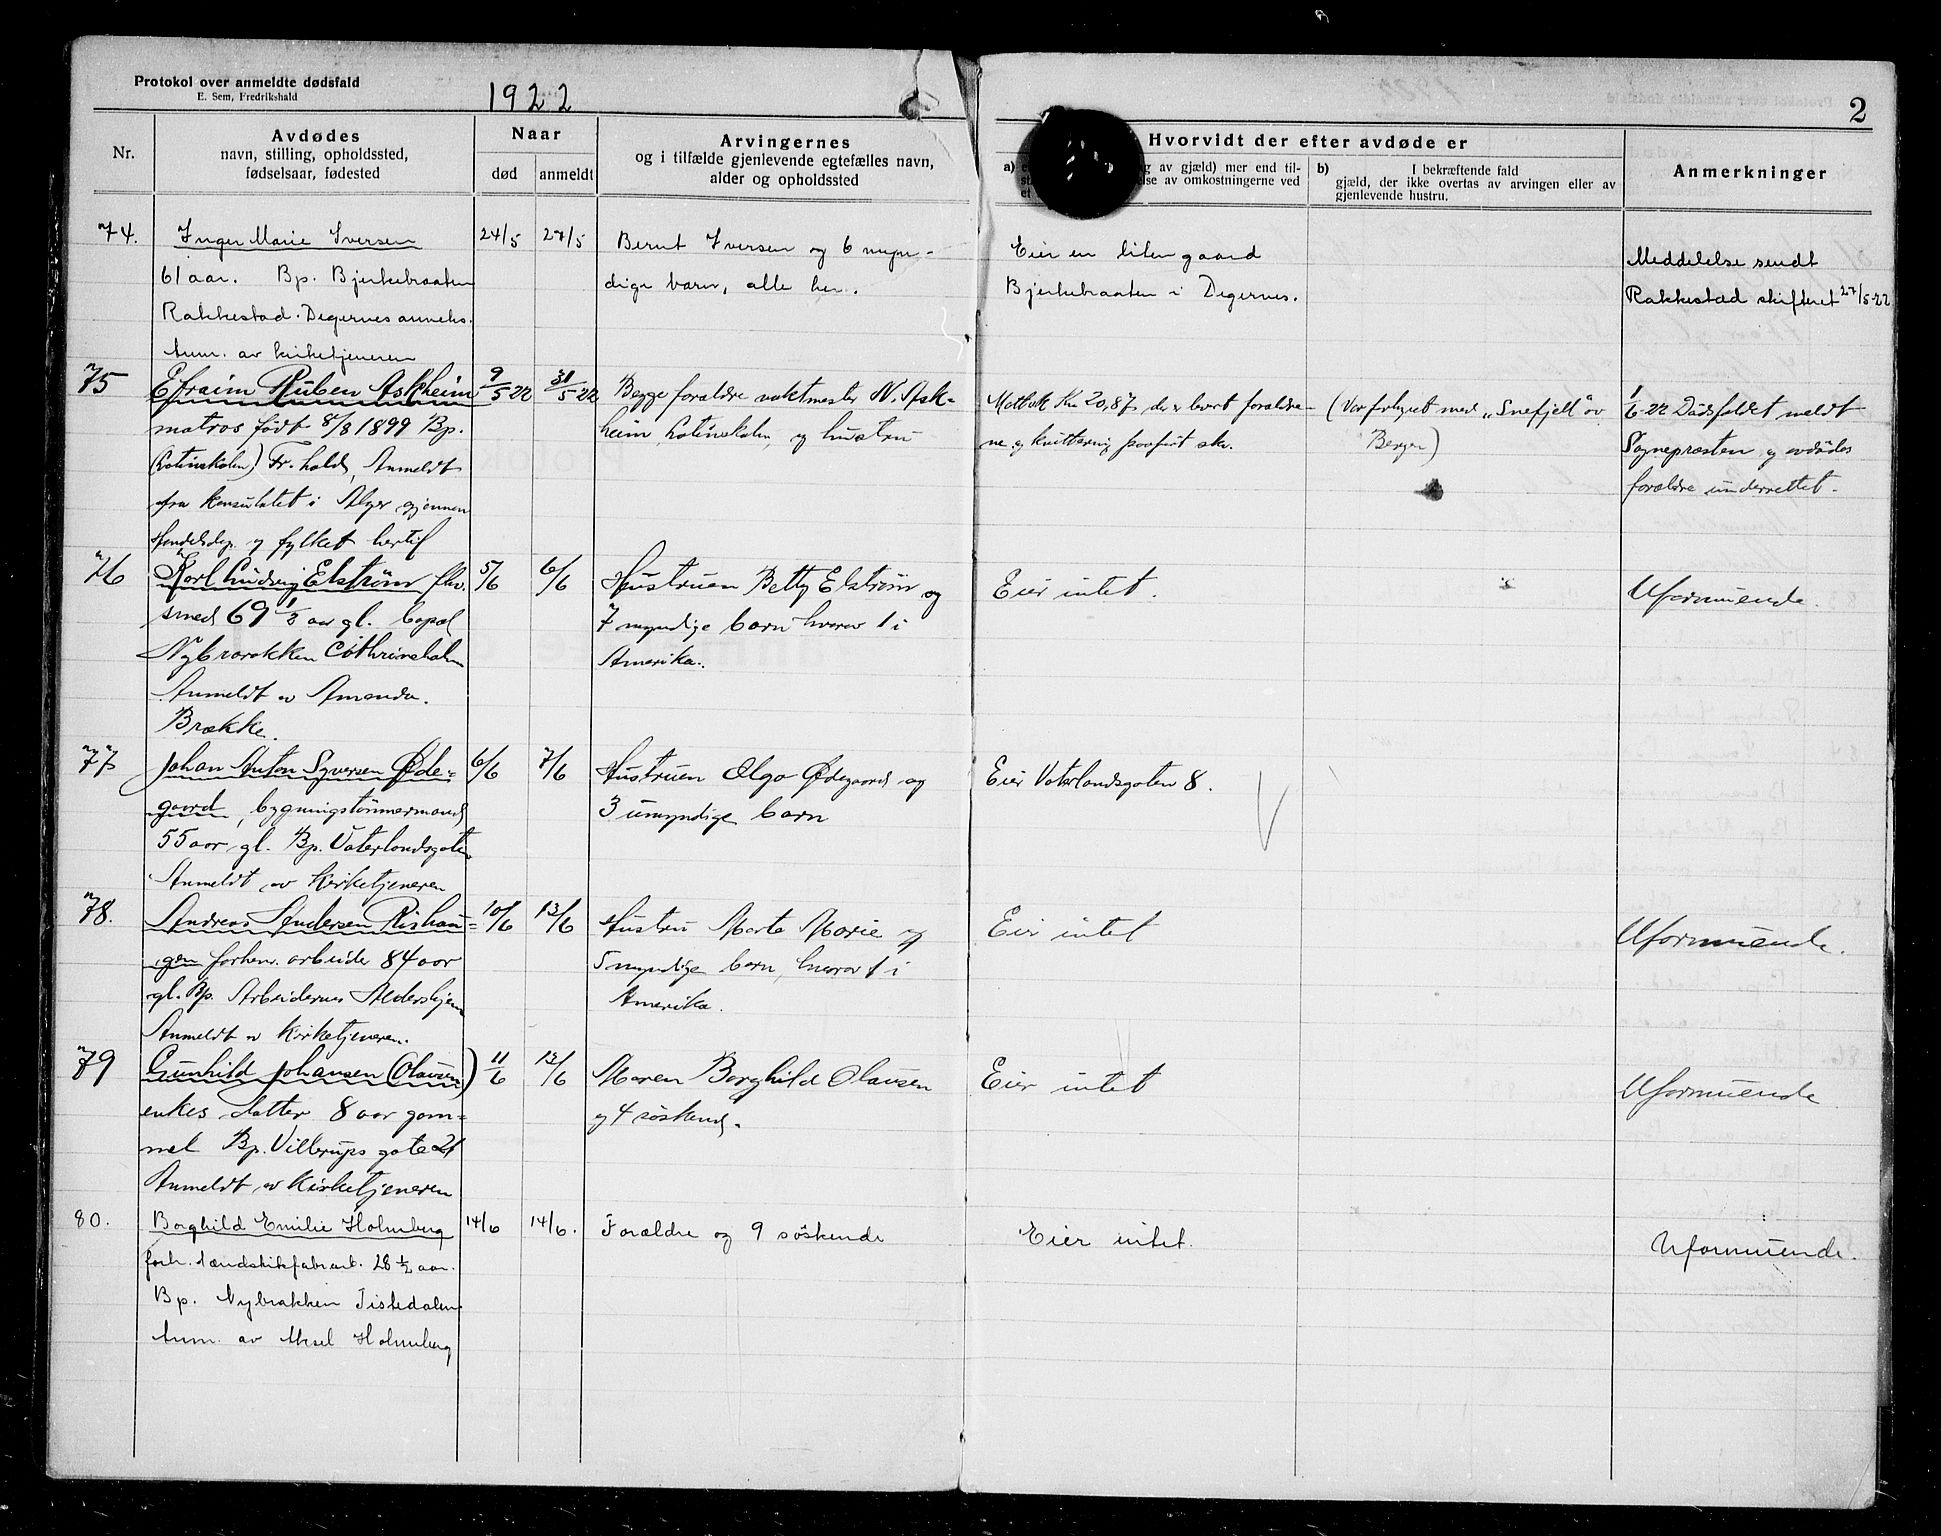 Protokol over anmeldte dødsfald
E. Sem, Fredrikshald
1922
2
Nr.
Avdødes
navn, stilling, opholdssted,
fødselsaar, fødested
Naar
død
anmeldt
Arvingernes
og i tilfælde gjenlevende egtefælles navn,
alder og opholdssted
Hvorvidt der efter avdøde er
a)
g av gjæld) mer end til-
else av omkostningerne ved
et
b) I bekræftende fald
gjæld, der ikke overtas av arvingen eller av
gjenlevende hustru.
Anmerkninger
74.
Inger Marie Iversen
61 aar. Bp. Bjerkebraaten
Rakkestad. Degernes anneks.
Anm. av kirketjeneren
24/5
27/5
Bernt Iversen og 6 myn-
dige barn, alle her.
Eier en liten gaard
Bjerkebraaten i Degernes.
Meddelelse sendt
Rakkestad skifteret 27/5-22
75
Efraim Ruben Askheim
matros født 8/8 1899 Bp.
(Latinskolen) Fr.hald, Anmeldt
fra konsulatet i Alger gjennem
Handelsdep. og fylket hertil
9/5 22
31/5 22
Begge forældre vaktmester N. Ask-
heim Latinskolen og hustru
Kr 20,87 der er levert forældre-
ne og kvittering paaført skr.
(Var forhyret med "Snefjell" av
Bergen)
1/6-22 Dødsfaldet meldt
Sognepresten og avdødes
forældre underrettet.
76
Karl Ludvig Elstrøm fhv.
smed 69 1/2 aar gl. bopæl
Nybrarakken Cathrineholm
Anmeldt av Amanda
Brække.
5/6
6/6
Hustruen Betty Elstrøm og
7 myndige barn hvorav 1 i
Amerika.
Eier intet.
Uformuende.
77
Johan Anton Syversen Øde-
gaard, bygningstømmermand
55 aar gl. Bp. Vaterlandsgaten
Anmeldt av Kirketjeneren
6/6
7/6
Hustruen Olga Ødegaard og
3 umyndige barn
Eier Vaterlandsgaten 8.
78.
Andreas Andersen Rishau-
gen forhenv. arbeider 84 aar
gl. Bp. Arbeidernes Aldershjem
Anmeldt av Kirketjeneren.
10/6
13/6
Hustru Marte Marie og
5 myndige barn, hvorav 1 i
Amerika.
Eier intet
Uformuende.
79
Gunhild Johansen (Olausen)
enkes datter 8 aar gam-
mel Bp. Villerups gate 21
Anmeldt av Kirketjeneren
11/6
13/6
Maren Borghild Olausen
og 4 søskend.
Eier intet
Uformuende
80.
Borghild Emilie Holmberg
forh. tændstikfabr.arb. 28 1/2 aar.
Bp. Nybrakken Tistedalen
Anm. av Aksel Holmberg
14/6
14/6.
Forældre og 9 søskende
Eier intet.
Uformuende.